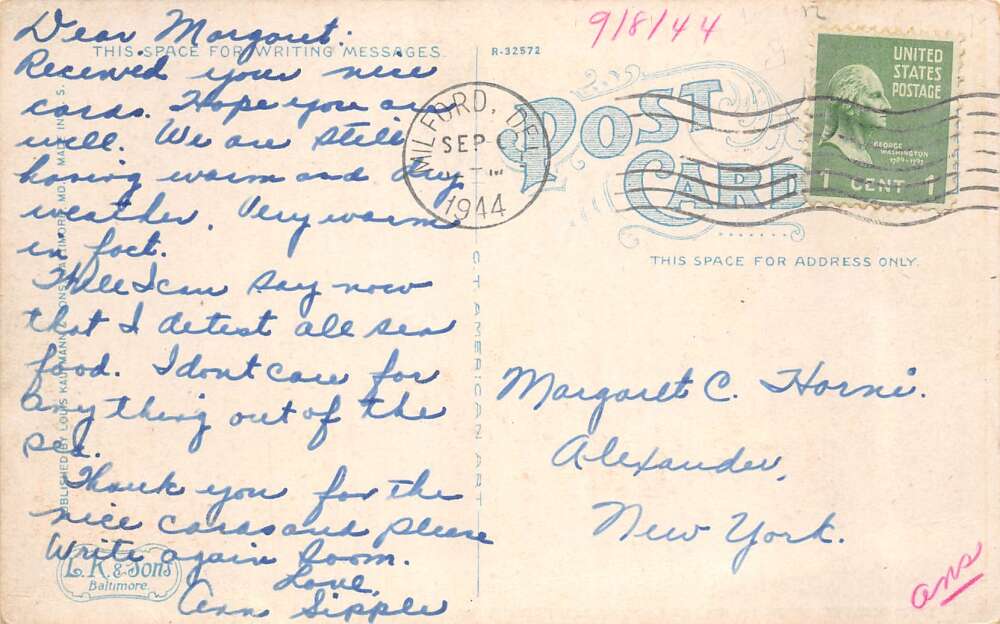 Dear Margaret:
THIS SPACE FOR WRITING MESSAGES
Received your nice
cards. Hope you are
well. We are still
having warm and dry
weather. Very warm
in fact.
Well I can say now
that I detest all sea
food. I dont care for
any thing out of the
sea.
Thank you for the
nice cards and please
write again soon.
Love,
Ann Sipple
L. K. & Sons
Baltimore.
PUBLISHED BY LOUIS KAUFMANN & SONS, BALTIMORE, MD. MADE IN U. S.
R-32572
C.T. AMERICAN ART
9/8/44
MILFORD, DEL.
SEP
1944
POST
CARD
UNITED
STATES
POSTAGE
GEORGE
WASHINGTON
1789-1797
1 CENT 1
THIS SPACE FOR ADDRESS ONLY.
Margaret C. Horni.
Alexander,
New York.
ans